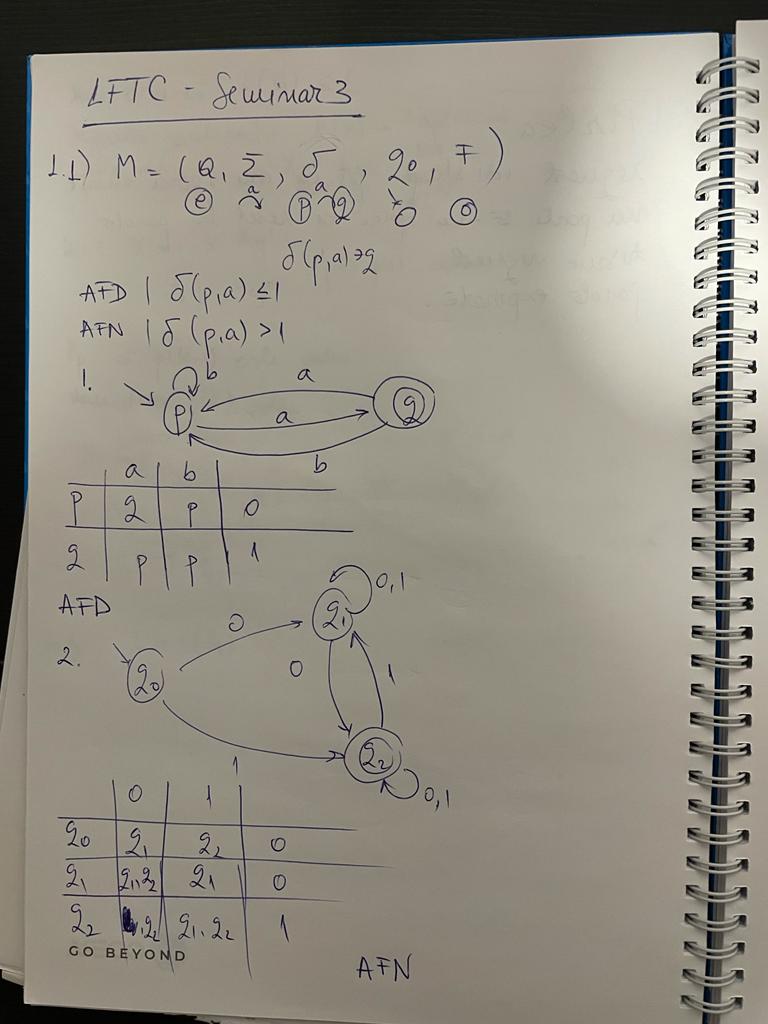 LFTC - Seminar 3
1.1) M = (Q, Σ, δ, q0, F)
e a p a q
δ(p,a)∋q
AFD | δ(p,a) ≤1
AFN | δ(p,a) >1
1. b a
p a q
b
a b
p q p 0
q p p 1
AFD
0 q1 0,1
2. q0 0 1
q2
1 0,1
0 1
q0 q1 q2 0
q1 q1,q2 q1 0
q2 ,q2 q1,q2 1
GO BEYOND
AFN